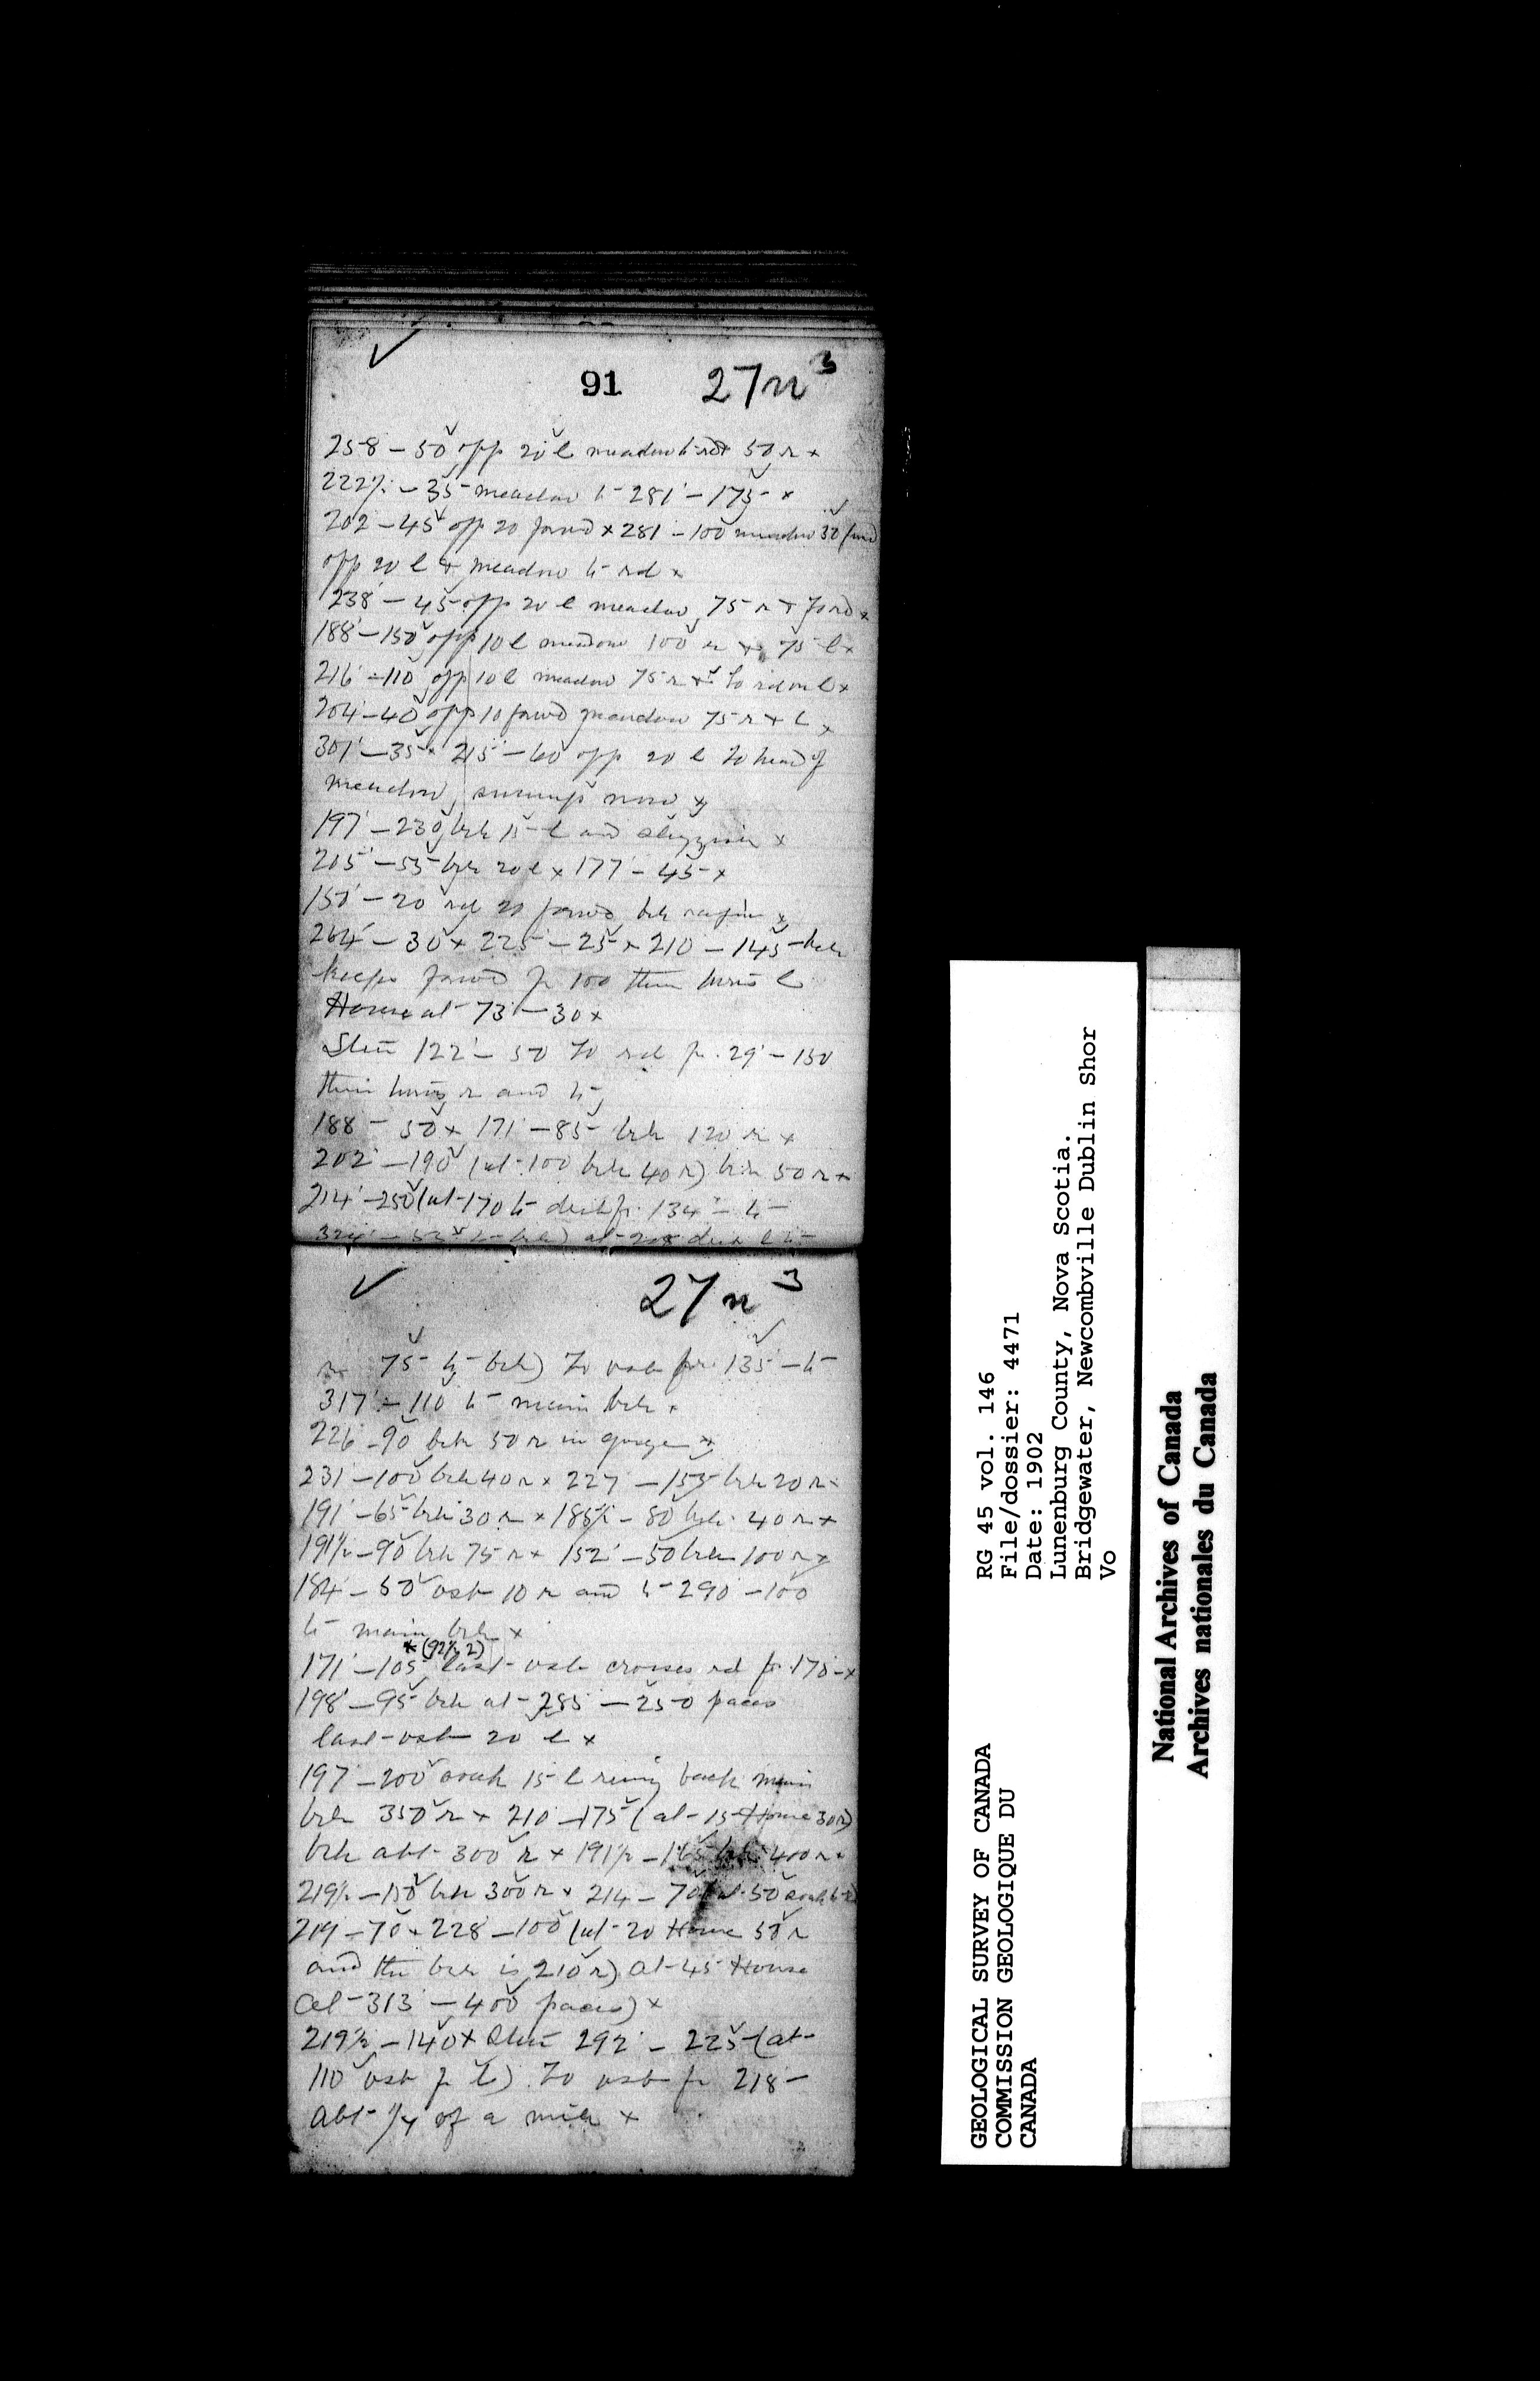 91 27n³
258 – 50 opp 20 l meadow to rd 50 r x
222½ – 35 meadow to 281 – 175 x
202 – 45 opp 20 forwd x 281 – 100 meadow 30 forwd
opp 20 l & meadow to rd x
238 – 45 opp 20 l meadow 75 r & forwd x
188 – 150 opp 10 l meadow 100 r & 75 l x
216 – 110 opp 10 l meadow 75 r & to rd on l x
204 – 40 opp 10 forwd meadow 75 r & l x
301 – 35 x 215 – 60 opp 20 l to head of
meadow, swamp now x
197 – 230 brk 15 l and x
205 – 55 brk 20 l x 177 – 45 x
150 – 20 rd 20 forwd brk x
264 – 30 x 225 – 25 x 210 – 145 brk
keeps forwd fr 100 then turns l
House at 73 – 30 x
122 – 50 to rd fr. 29 – 150
then turns r and to
188 – 50 x 171 – 85 brk 120 r x
202 – 190 (at 100 brk 40 r) brk 50 r x
214 – 250 (at 170 to fr. 134 – to
324 – 53 to brk) at
27n³
r 75 to brk) to vsb fr 135 – to
317 – 110 to main brk x
226 – 90 brk 50 r in gorge x
231 – 100 brk 40 r x 227 – 155 brk 20 r x
191 – 65 brk 30 r x 185½ – 80 brk 40 r x
191½ – 90 brk 75 r x 152 – 50 brk 100 r x
184 – 50 vsb 10 r and to 290 – 100
to main brk x
* (92½ 2)
171 – 105 last vsb crosses rd fr 175 – x
198 – 95 brk at 285 – 250 paces
last vsb 20 l x
197 – 200 15 l back main
brk 350 r x 210 – 175 (at 15 House 30 r)
brk abt 300 r x 191½ – 165 brk 400 r x
219½ – 150 brk 300 r x 214 – 70 at 50
219 – 70 x 228 – 100 (at 20 House 50 r
and the brk is 210 r) at 45 House
at 313 – 400 paces) x
219½ – 140 x 292 – 225 (at
110 vsb fr l) to vsb fr 218 –
abt ¼ of a mile x
GEOLOGICAL SURVEY OF CANADA
COMMISSION GEOLOGIQUE DU
CANADA
RG 45 vol. 146
File/dossier: 4471
Date: 1902
Lunenburg County, Nova Scotia.
Bridgewater, Newcombville Dublin Shor
Vo
National Archives of Canada
Archives nationales du Canada